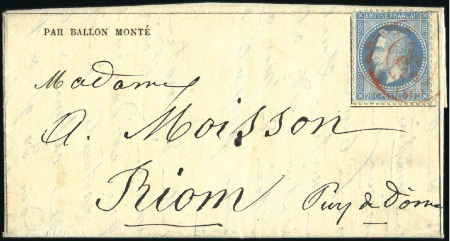 PAR BALLON MONTÉ
EMPIRE FRANÇAIS
20c POSTES 20c
Madame
A. Moisson
Riom Puy de Dôme